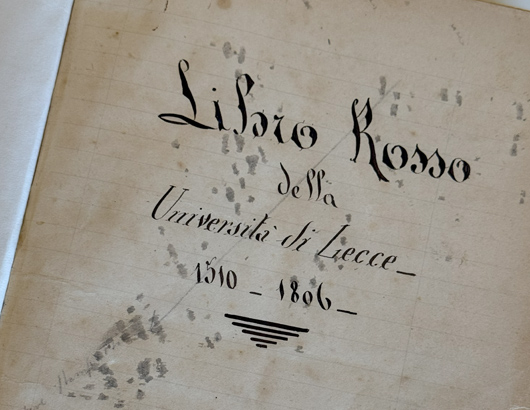 Libro Rosso
della
Università di Lecce_
1510 - 1806_